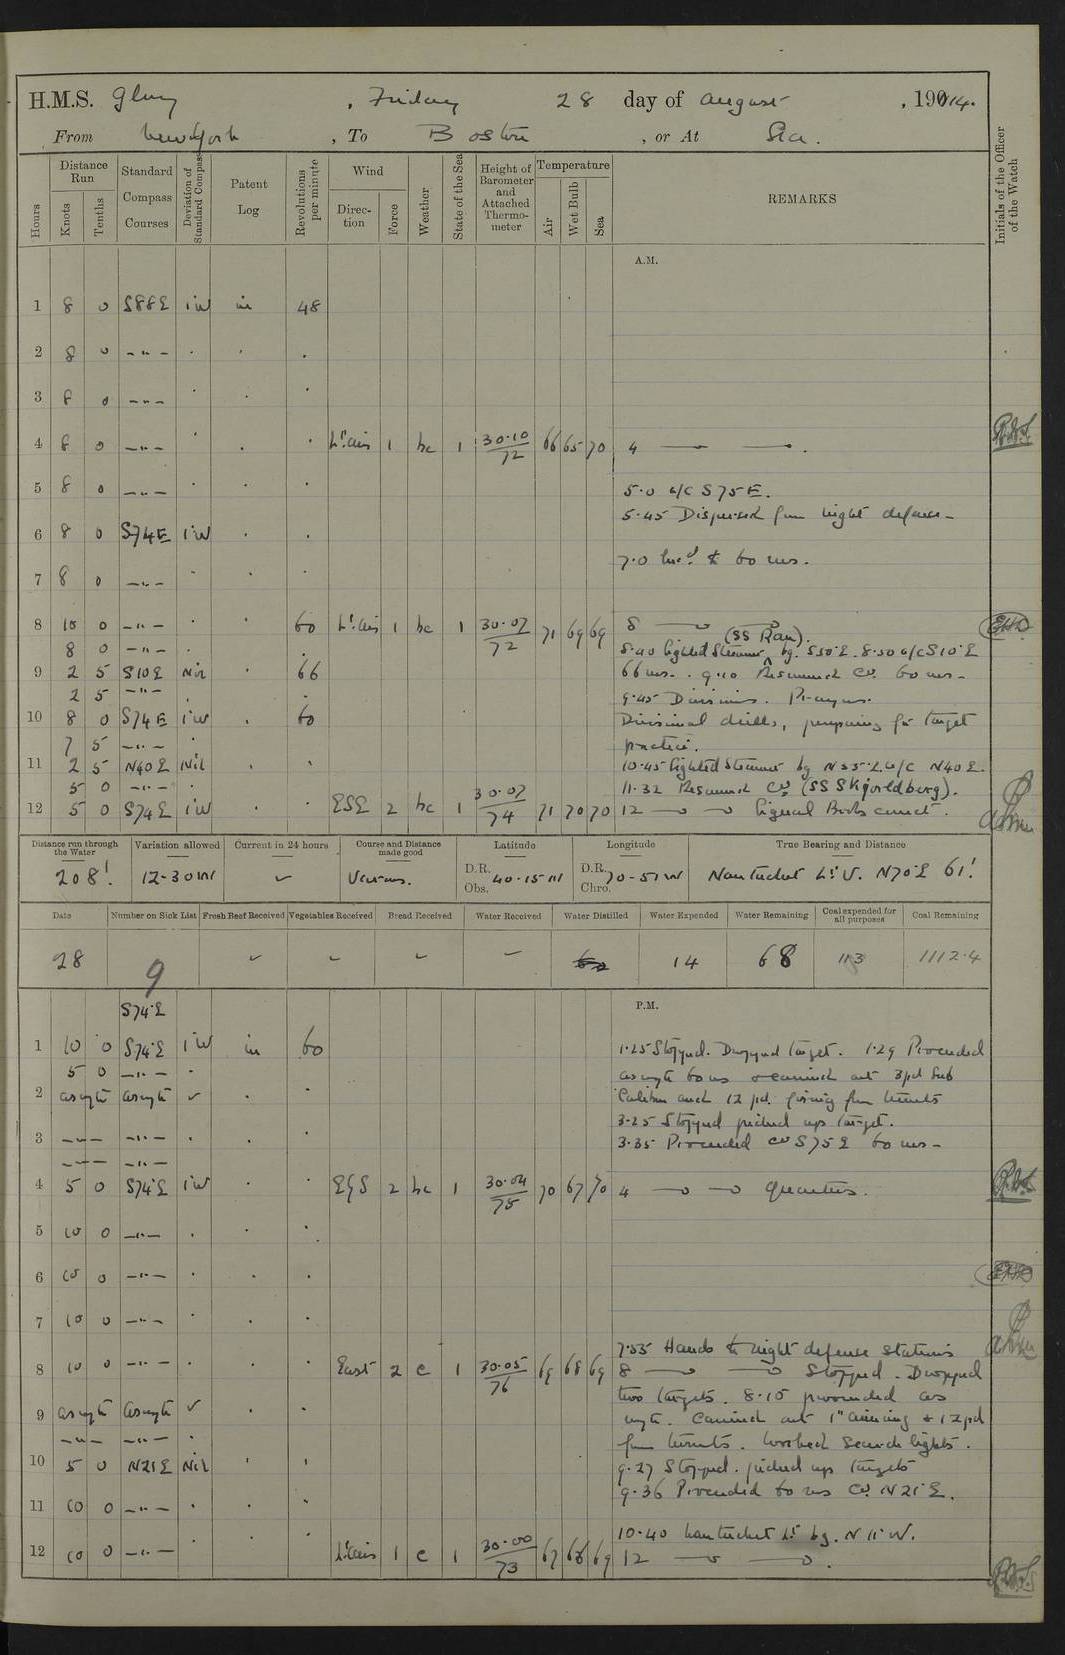 H.M.S. Glory , Friday 28 day of August , 1914.
From New York , To Boston , or At Sea.
Hours
Distance Run
Knots
Tenths
Standard Compass Courses
Deviation of Standard Compass
Patent Log
Revolutions per minute
Wind
Direction
Force
Weather
State of the Sea
Height of Barometer and Attached Thermometer
Temperature
Air
Wet Bulb
Sea
REMARKS
Initials of the Officer of the Watch
A.M.
1 8 0 S88E 1W in 48
2 8 0 -"-
3 8 0 -"-
4 8 0 -"- Lt airs 1 bc 1 30.10/72 66 65 70 4
5 8 0 -"- 5.0 a/c S75E.
5.45 Dispersed from night defence
6 8 0 S74E 1W
7.0 Incd to 60 revs.
7 8 0 -"-
8 10 0 -"- 60 Lt airs 1 bc 1 30.07/72 71 69 69 8
(SS Ran).
8 0 -"- 8.40 Sighted Steamer bg. S50E. 8.50 a/c S10E
9 2 5 S10E Nil 66 66 revs. 9.10 Resumed Co. 60 revs
2 5 -"- 9.45 Divisions. Prayers.
10 8 0 S74E 1W 60 Divisional drills, preparing for target
7 5 -"- practice.
11 2 5 N40E Nil 10.45 Sighted Steamer bg N55E a/c N40E.
5 0 -"- 11.32 Resumed Co (SS Skjoldborg).
12 5 0 S74E 1W ESE 2 bc 1 30.07/74 71 70 70 12 Signal Books correct.
Distance run through the Water
Variation allowed
Current in 24 hours
Course and Distance made good
Latitude
Longitude
True Bearing and Distance
208' 12-30W Various. D.R. Obs. 40-15-N D.R. Chro. 70-51W Nantucket Lt V. N70E 61'
Date
Number on Sick List
Fresh Beef Received
Vegetables Received
Bread Received
Water Received
Water Distilled
Water Expended
Water Remaining
Coal expended for all purposes
Coal Remaining
28 9 14 68 113 1112.4
P.M.
S74E
1 10 0 S74E 1W in 60 1.25 Stopped. Dropped target. 1.29 Proceeded
5 0 -"- as reqte 60 revs & carried out 3pd Sub
2 as reqte as reqte Calibre and 12 pd. firing from turrets
3.25 Stopped picked up target.
3 -"- -"- 3.35 Proceeded Co S75E 60 revs
-"- -"-
4 5 0 S74E 1W 2 bc 1 30.04/75 70 67 70 4 Quarters.
5 10 0 -"-
6 10 0 -"-
7 10 0 -"-
7.55 Hands to night defence stations
8 10 0 -"- East 2 c 1 30.05/76 69 68 69 8 Stopped. Dropped
two targets. 8.10 proceeded as
9 as reqte as reqte reqte. Carried out 1" aiming & 12pd
-"- -"- from turrets. Worked Search lights.
10 5 0 N21E Nil 9.27 Stopped. picked up targets
9.36 Proceeded 60 revs Co. N21E.
11 10 0 -"-
10.40 Nantucket Lt bg. N11W.
12 10 0 -"- Lt airs 1 c 1 30.00/73 67 66 69 12